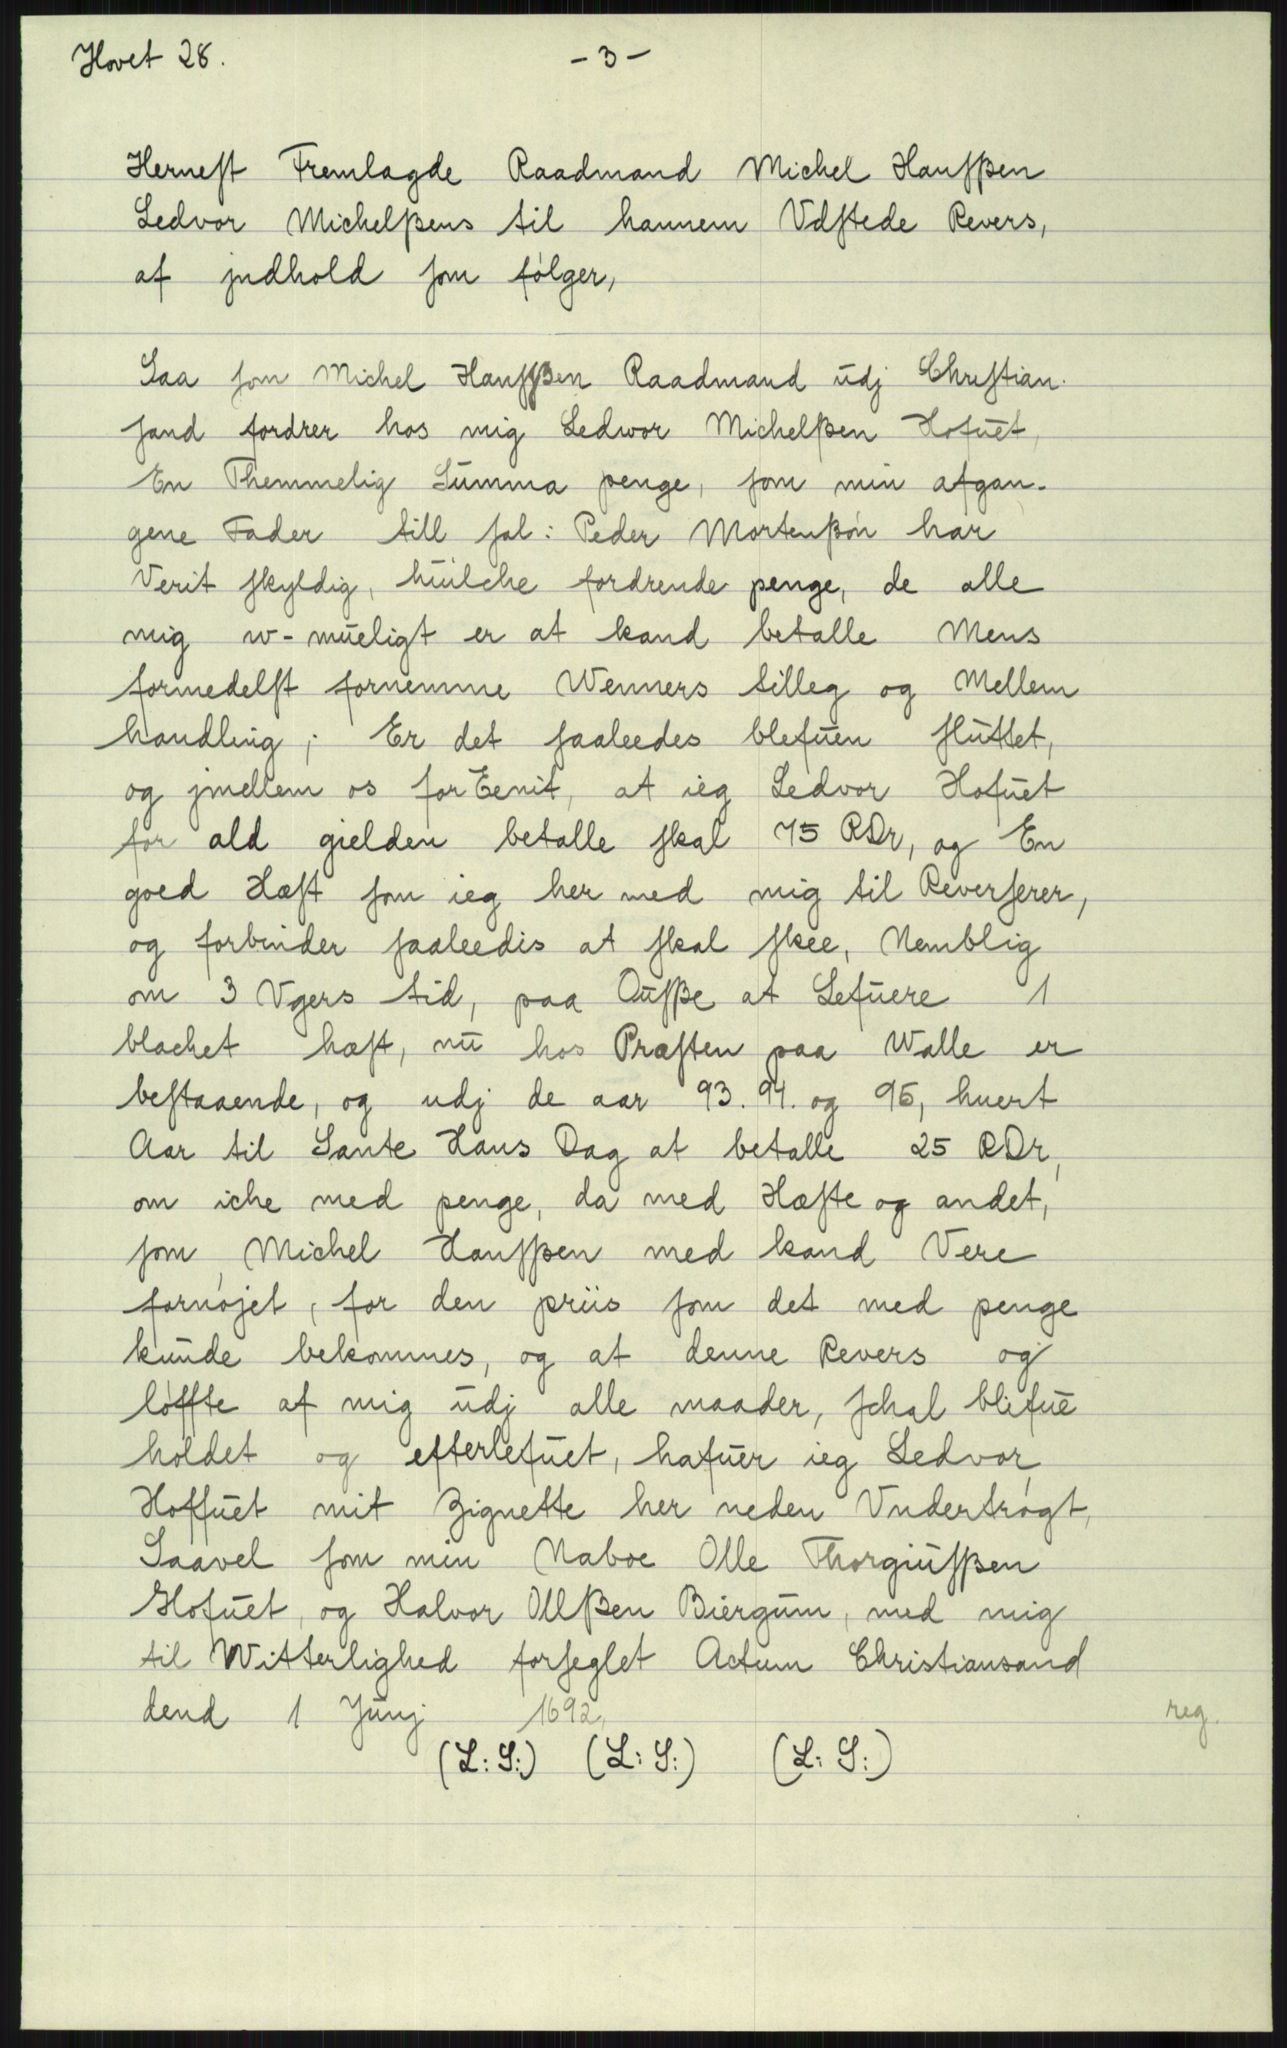 Hovet 28.
- 3 -
Hernest Fremlagde Raadmand Michel Hansßen
Ledvor Michelßens til hannem Vdstede Revers,
af jndhold som følger,
Saa som Michel Hansßen Raadmand udj Christian-
sand fordrer hos mig Ledwor Michelßen Hofuet,
En Themmelig Summa penge, som min afgan-
gene Fader till sal: Peder Mortenßøn har
Verit skyldig, huilche fordrende penge, de alle
mig w-mueligt er at kand betalle Mens
formedelst fornemme Wenners tilleg og Mellem
handling, Er det saaleedes blefuen sluttet,
og jmellem os forEenit, at ieg Ledvor Hofuet
for ald gielden betalle skal 75 RDr, og En
goed Hæst som ieg her med mig til Reverserer,
og forbinder saaleedis at skal skee, Nemblig
om 3 Vgers tid, paa Oufße at Lefuere 1
blachet hæst, nu hos Præsten paa Walle er
bestaaende, og udj de aar 93. 94. og 95, huert
Aar til Sante Hans Dag at betalle 25 RDr,
om iche med penge, da med Hæste og andet,
som Michel Hansßen med kand Vere
fornøjet, for den priis som det med penge
kunde bekommes, og at denne Revers og
løffte af mig udj alle maader, schal blifue
holdet og efterlefuet, hafuer ieg Ledvor
Hoffuet mit Zignette her neden Vndertrøgt,
Saavel som min Naboe Olle Thorgiusßen
Hofuet, og Halvor Ollßen Biergum, med mig
til Witterlighed forseglet Actum Christiansand
dend 1 Junj 1692, reg.
(L: S:) (L: S:) (L: S:)